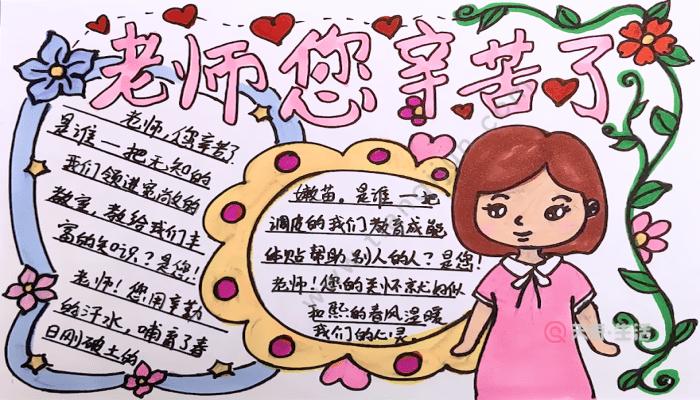 老师您辛苦了
老师,您辛苦了.
是谁一把无知的
我们领进宽敞的
教室,教给我们丰
富的知识?是您!
老师!您用辛勤
的汗水,哺育了春
日刚破土的
嫩苗。是谁一把
调皮的我们教育成能
体贴帮助别人的人?是您!
老师!您的关怀就好似
和熙的春风温暖
我们的心灵。